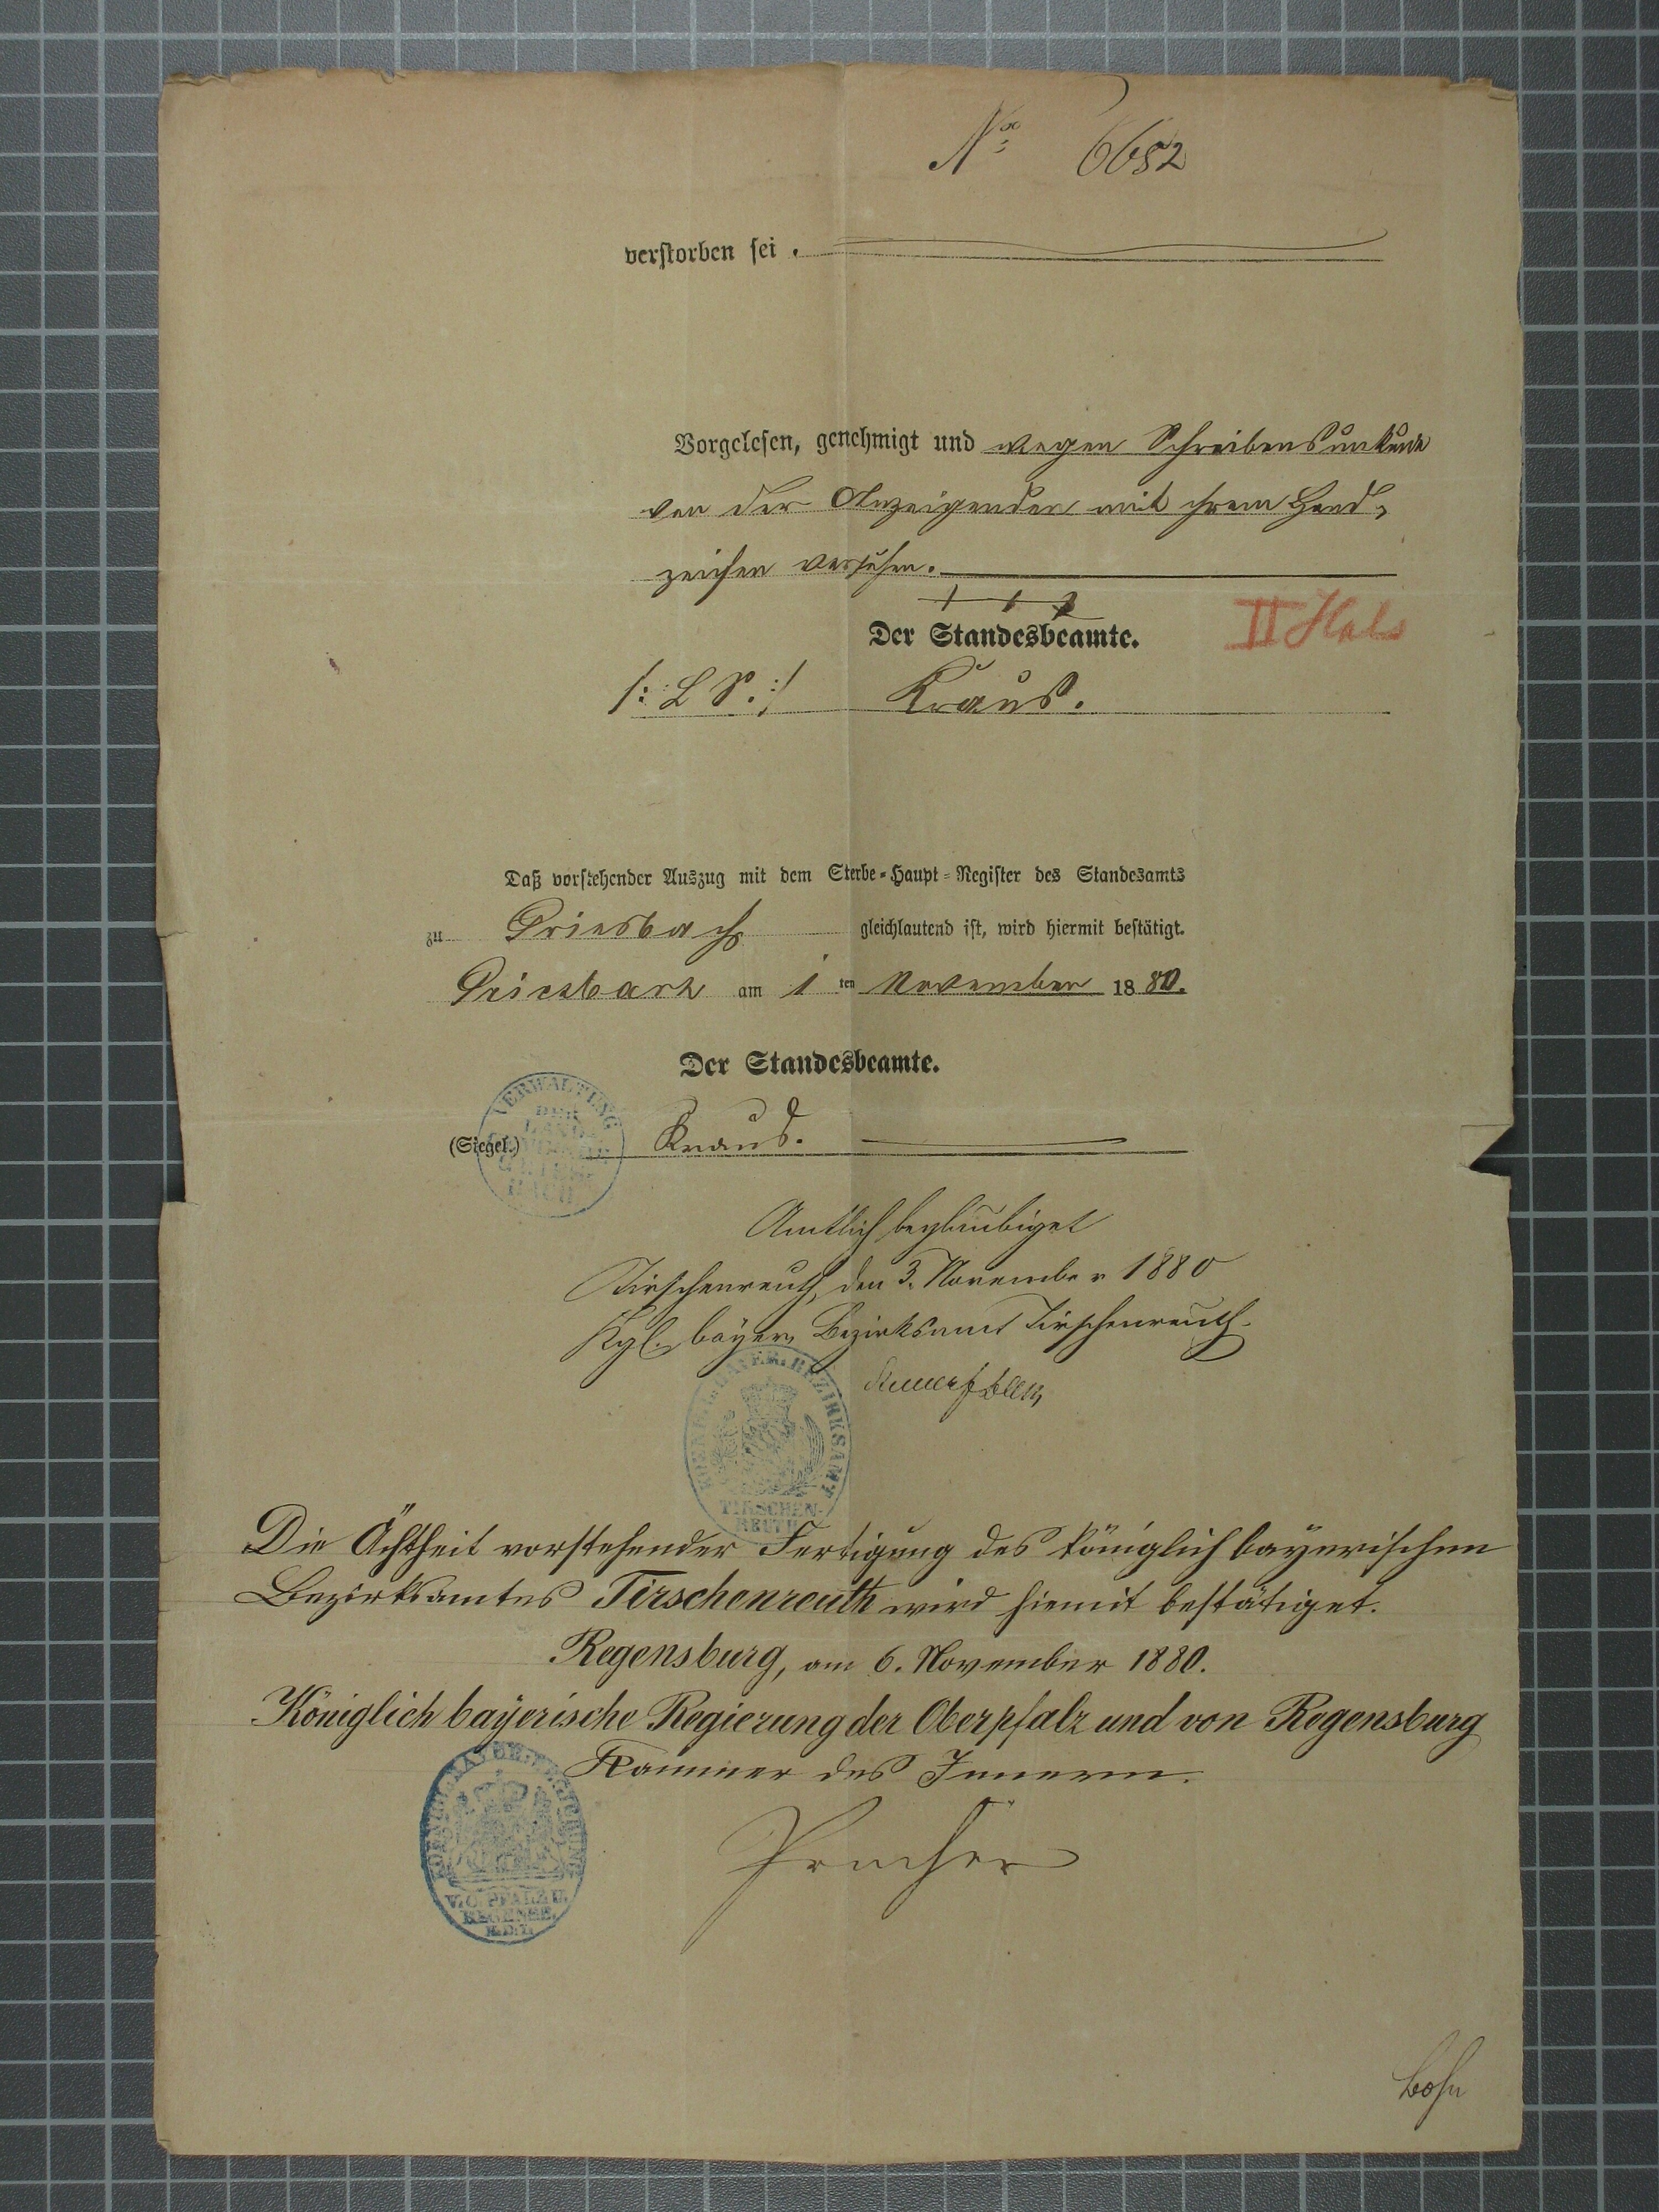 No: 6652
verstorben sei .
Vorgelesen, genehmigt und wegen Schreibensunkunde
von der Anzeigenden mit ihrem Hand-
zeichen versehen.
Der Standesbeamte.
II Hals
/: L S. :/ Kraus.
Daß vorstehender Auszug mit dem Sterbe-Haupt-Register des Standesamts
zu Griesbach gleichlautend ist, wird hiermit bestätigt.
Griesbach am 1 ten November 18 80.
Der Standesbeamte.
(Siegel.) Kraus.
VERWALTUNG DER LAND
Amtlich beglaubiget
Tirschenreuth, den 3. November 1880
Kgl. bayer. Bezirksamt Tirschenreuth.
BAYER. BEZIRKSAMT TIRSCHEN-REUTH
Die Ächtheit vorstehender Fertigung des königlich bayerischen
Bezirksamtes Tirschenreuth wird hiemit bestätiget.
Regensburg, am 6. November 1880.
Königlich bayerische Regierung der Oberpfalz und von Regensburg
Kammer des Innern.
V. O. PFALZ U. REGENSB. K.D.I.
Pracher